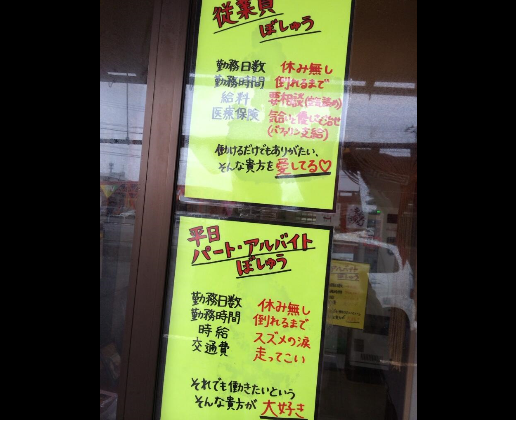 従業員
ぼしゅう
勤務日数 休み無し
勤務時間 倒れるまで
給料 要相談
医療保険 気合と優しさで治せ
(バファリン支給)
働けるだけでもありがたい、
そんな貴方を愛してる♡
平日
パート・アルバイト
ぼしゅう
勤務日数 休み無し
勤務時間 倒れるまで
時給 スズメの涙
交通費 走ってこい
それでも働きたいという
そんな貴方が 大好き